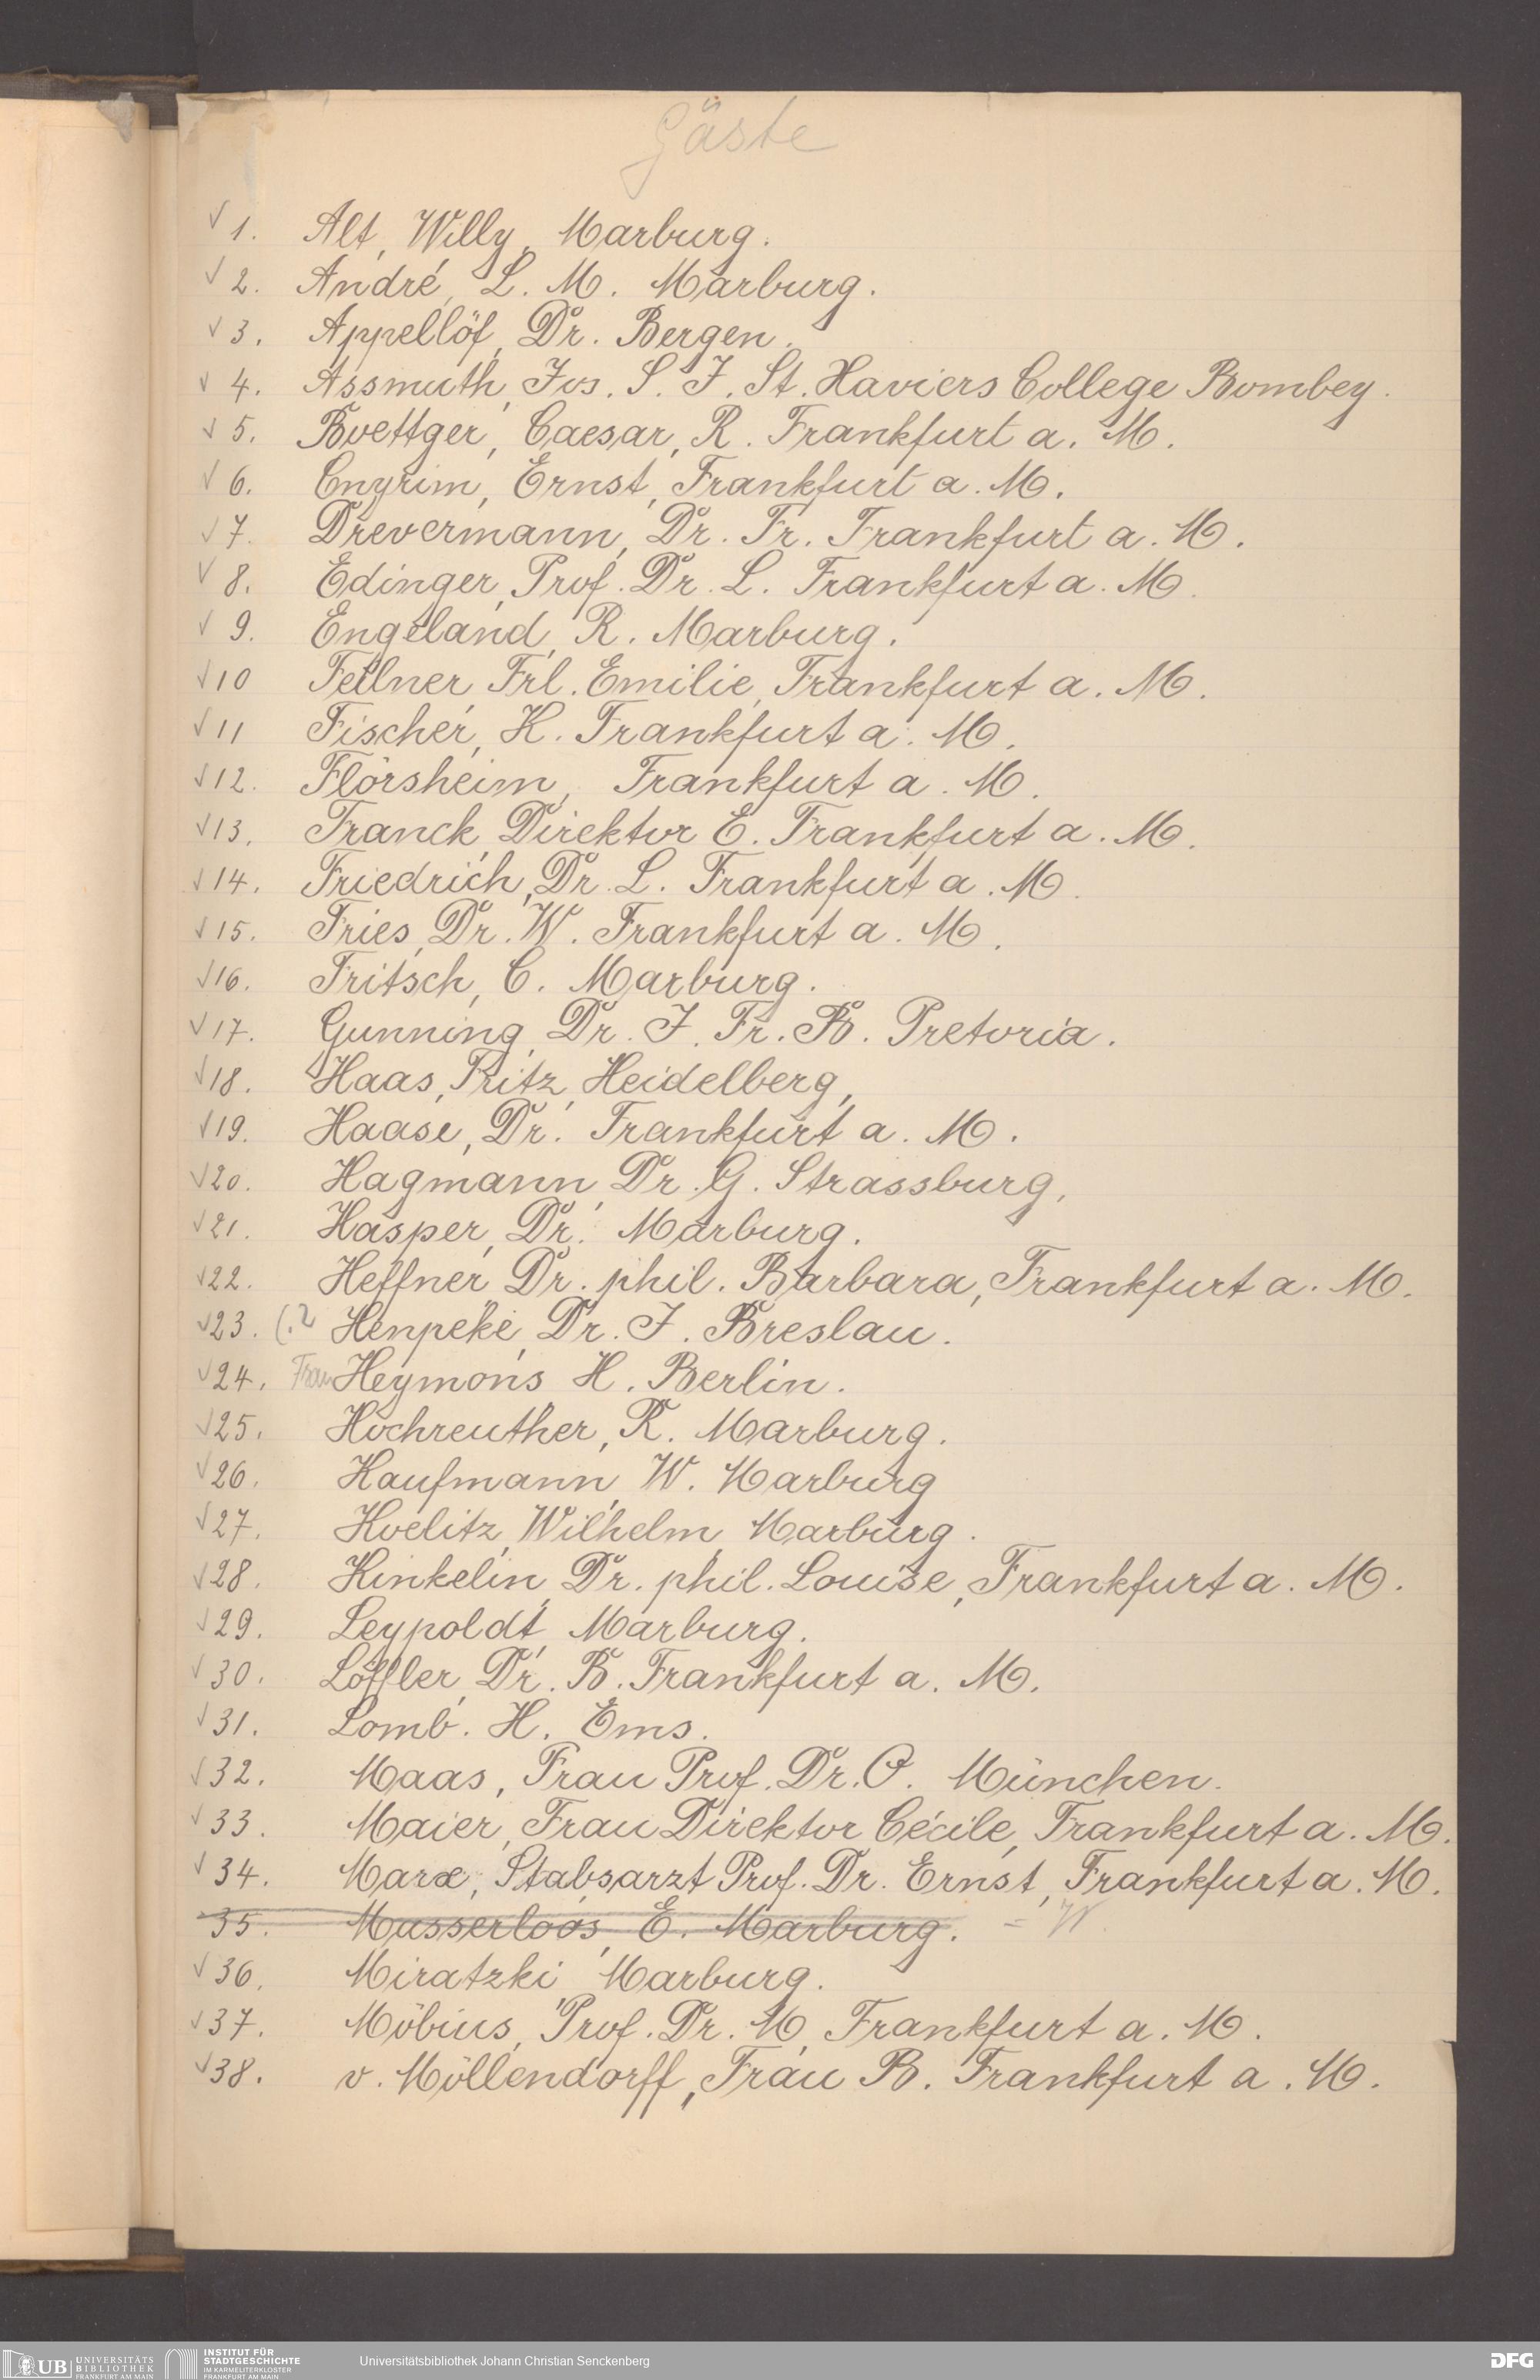 Gäste
√ 1. Alt, Willy, Marburg.
√ 2. André, L. M. Marburg.
√ 3. Appellöf, Dr. Bergen.
√ 4. Assmuth, Jos. S. J. St. Xaviers College Bombey.
√ 5. Boettger, Caesar, R. Frankfurt a. M.
√ 6. Cnyrim, Ernst, Frankfurt a. M.
√ 7. Drevermann, Dr. Fr. Frankfurt a. M.
√ 8. Edinger, Prof. Dr. L. Frankfurt a. M.
√ 9. Engeland, R. Marburg.
√ 10 Fellner Frl. Emilie, Frankfurt a. M.
√ 11 Fischer, K. Frankfurt a. M.
√ 12. Flörsheim, Frankfurt a. M.
√ 13. Franck, Direktor E. Frankfurt a. M.
√ 14. Friedrich, Dr. L. Frankfurt a. M.
√ 15. Fries, Dr. W. Frankfurt a. M.
√ 16. Fritsch, C. Marburg.
√ 17. Gunning, Dr. J. Fr. B. Pretoria.
√ 18. Haas, Fritz, Heidelberg,
√ 19. Haase, Dr. Frankfurt a. M.
√ 20. Hagmann, Dr. G. Strassburg,
√ 21. Hasper, Dr. Marburg.
√ 22. Heffner, Dr. phil. Barbara, Frankfurt a. M.
√ 23. (.? Henpeke, Dr. J. Breslau.
√ 24. Frau Heymons, H. Berlin.
√ 25. Hochreuther, R. Marburg.
√ 26. Kaufmann, W. Marburg
√ 27. Koelitz, Wilhelm, Marburg.
√ 28. Kinkelin, Dr. phil. Louise, Frankfurt a. M.
√ 29. Leypoldt, Marburg.
√ 30. Löffler, Dr. B. Frankfurt a. M.
√ 31. Lomb. H. Ems.
√ 32. Maas, Frau Prof. Dr. O. München.
√ 33. Maier, Frau Direktor Cécile, Frankfurt a. M.
√ 34. Marx, Stabsarzt Prof. Dr. Ernst, Frankfurt a. M.
35. Musserloos, E. Marburg. = W.
√ 36. Miratzki Marburg.
√ 37. Möbius, Prof. Dr. M, Frankfurt a. M.
√ 38. v. Möllendorff, Frau B. Frankfurt a. M.
UB UNIVERSITÄTS BIBLIOTHEK FRANKFURT AM MAIN
INSTITUT FÜR STADTGESCHICHTE IM KARMELITERKLOSTER FRANKFURT AM MAIN
Universitätsbibliothek Johann Christian Senckenberg
DFG